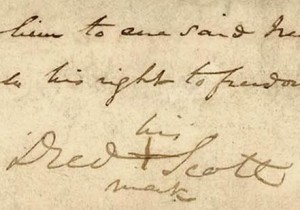 him to sue said Ire
his right to freedom
his
Dred + Scott
mark